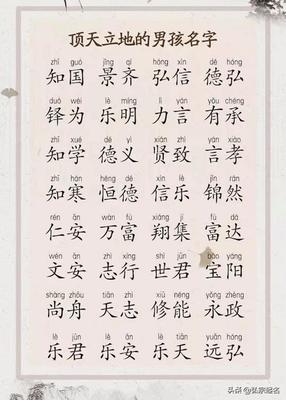 顶天立地的男孩名字
zhī guó jǐng qí hóng xìn dé hóng
知国 景齐 弘信 德弘
duó wéi lè míng lì yán yǒu chéng
铎为 乐明 力言 有承
zhī xué dé yì xián zhì yán xiào
知学 德义 贤致 言孝
zhī hán héng dé xìn lè jǐn rán
知寒 恒德 信乐 锦然
rén ān wàn fù xiáng jí fù dá
仁安 万富 翔集 富达
wén ān zhì xíng shì jūn bǎo yáng
文安 志行 世君 宝阳
shàng zhōu tiān zhì xiū néng yǒng zhèng
尚舟 天志 修能 永政
lè jūn lè ān lè tiān yuǎn hóng
乐君 乐安 乐天 远弘
头条 @弘家起名